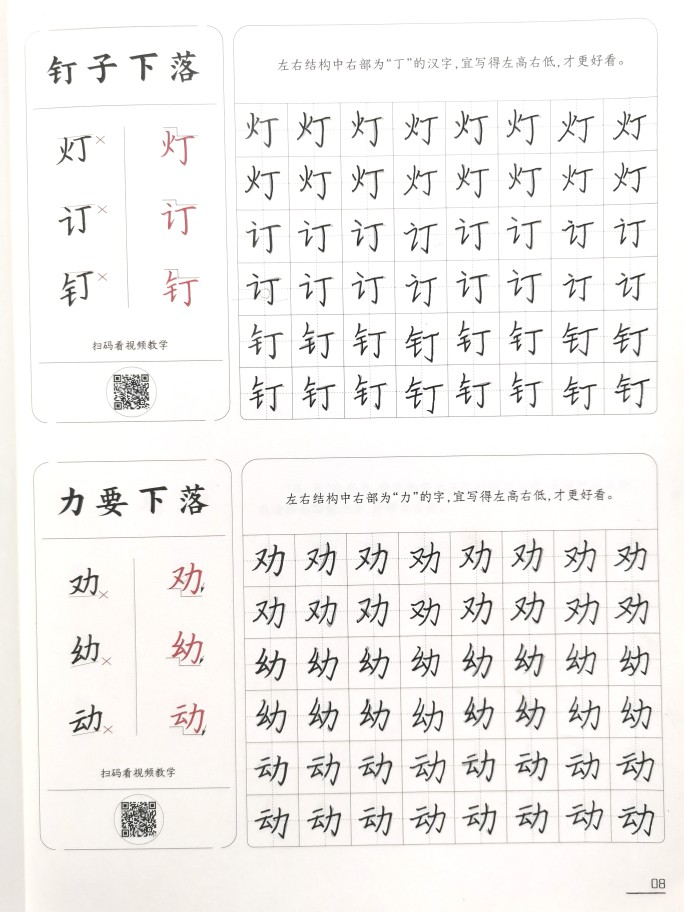 钉子下落
灯× 灯
订× 订
钉× 钉
扫码看视频教学
左右结构中右部为“丁”的汉字，宜写得左高右低，才更好看。
灯灯灯灯灯灯灯灯
灯灯灯灯灯灯灯灯
订订订订订订订订
订订订订订订订订
钉钉钉钉钉钉钉钉
钉钉钉钉钉钉钉钉
力要下落
劝× 劝
幼× 幼
动× 动
扫码看视频教学
左右结构中右部为“力”的字，宜写得左高右低，才更好看。
劝劝劝劝劝劝劝劝
劝劝劝劝劝劝劝劝
幼幼幼幼幼幼幼幼
幼幼幼幼幼幼幼幼
动动动动动动动动
动动动动动动动动
08